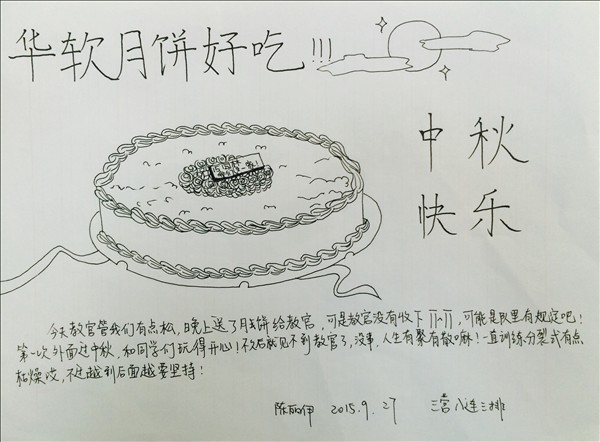 华软月饼好吃!!!
中秋
快乐
今天教官管我们有点松,晚上送了月饼给教官,可是教官没有收下 ╥﹏╥,可能是队里有规定吧!
第一次外面过中秋,和同学们玩得开心!不久后就见不到教官了,没事,人生有聚有散嘛!一直训练分裂式有点
枯燥哎,不过越到后面越要坚持!
陈丽伊 2015.9.27 三营八连三排